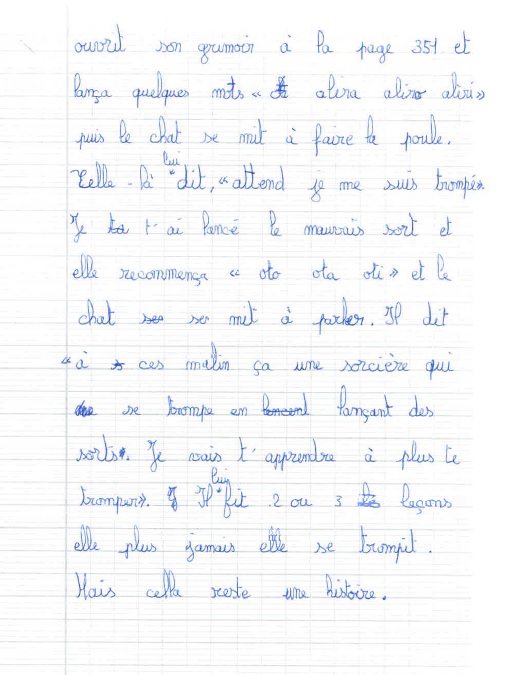 ouvrit son grimoir à la page 351 et
lança quelques mots « alira aliro aliri »
puis le chat se mit à faire la poule.
Celle-là lui dit, « attend je me suis trompé ».
Je t'ai lancé le mauvais sort et
elle recommença « oto ota oti » et le
chat se mit à parler. Il dit
« à ces malin ça une sorcière qui
se trompe en lançant des
sorts. Je vais t'apprendre à plus te
tromper ». Il lui fit 2 ou 3 leçons
elle plus jamais elle se trompit.
Mais cella reste une histoire.